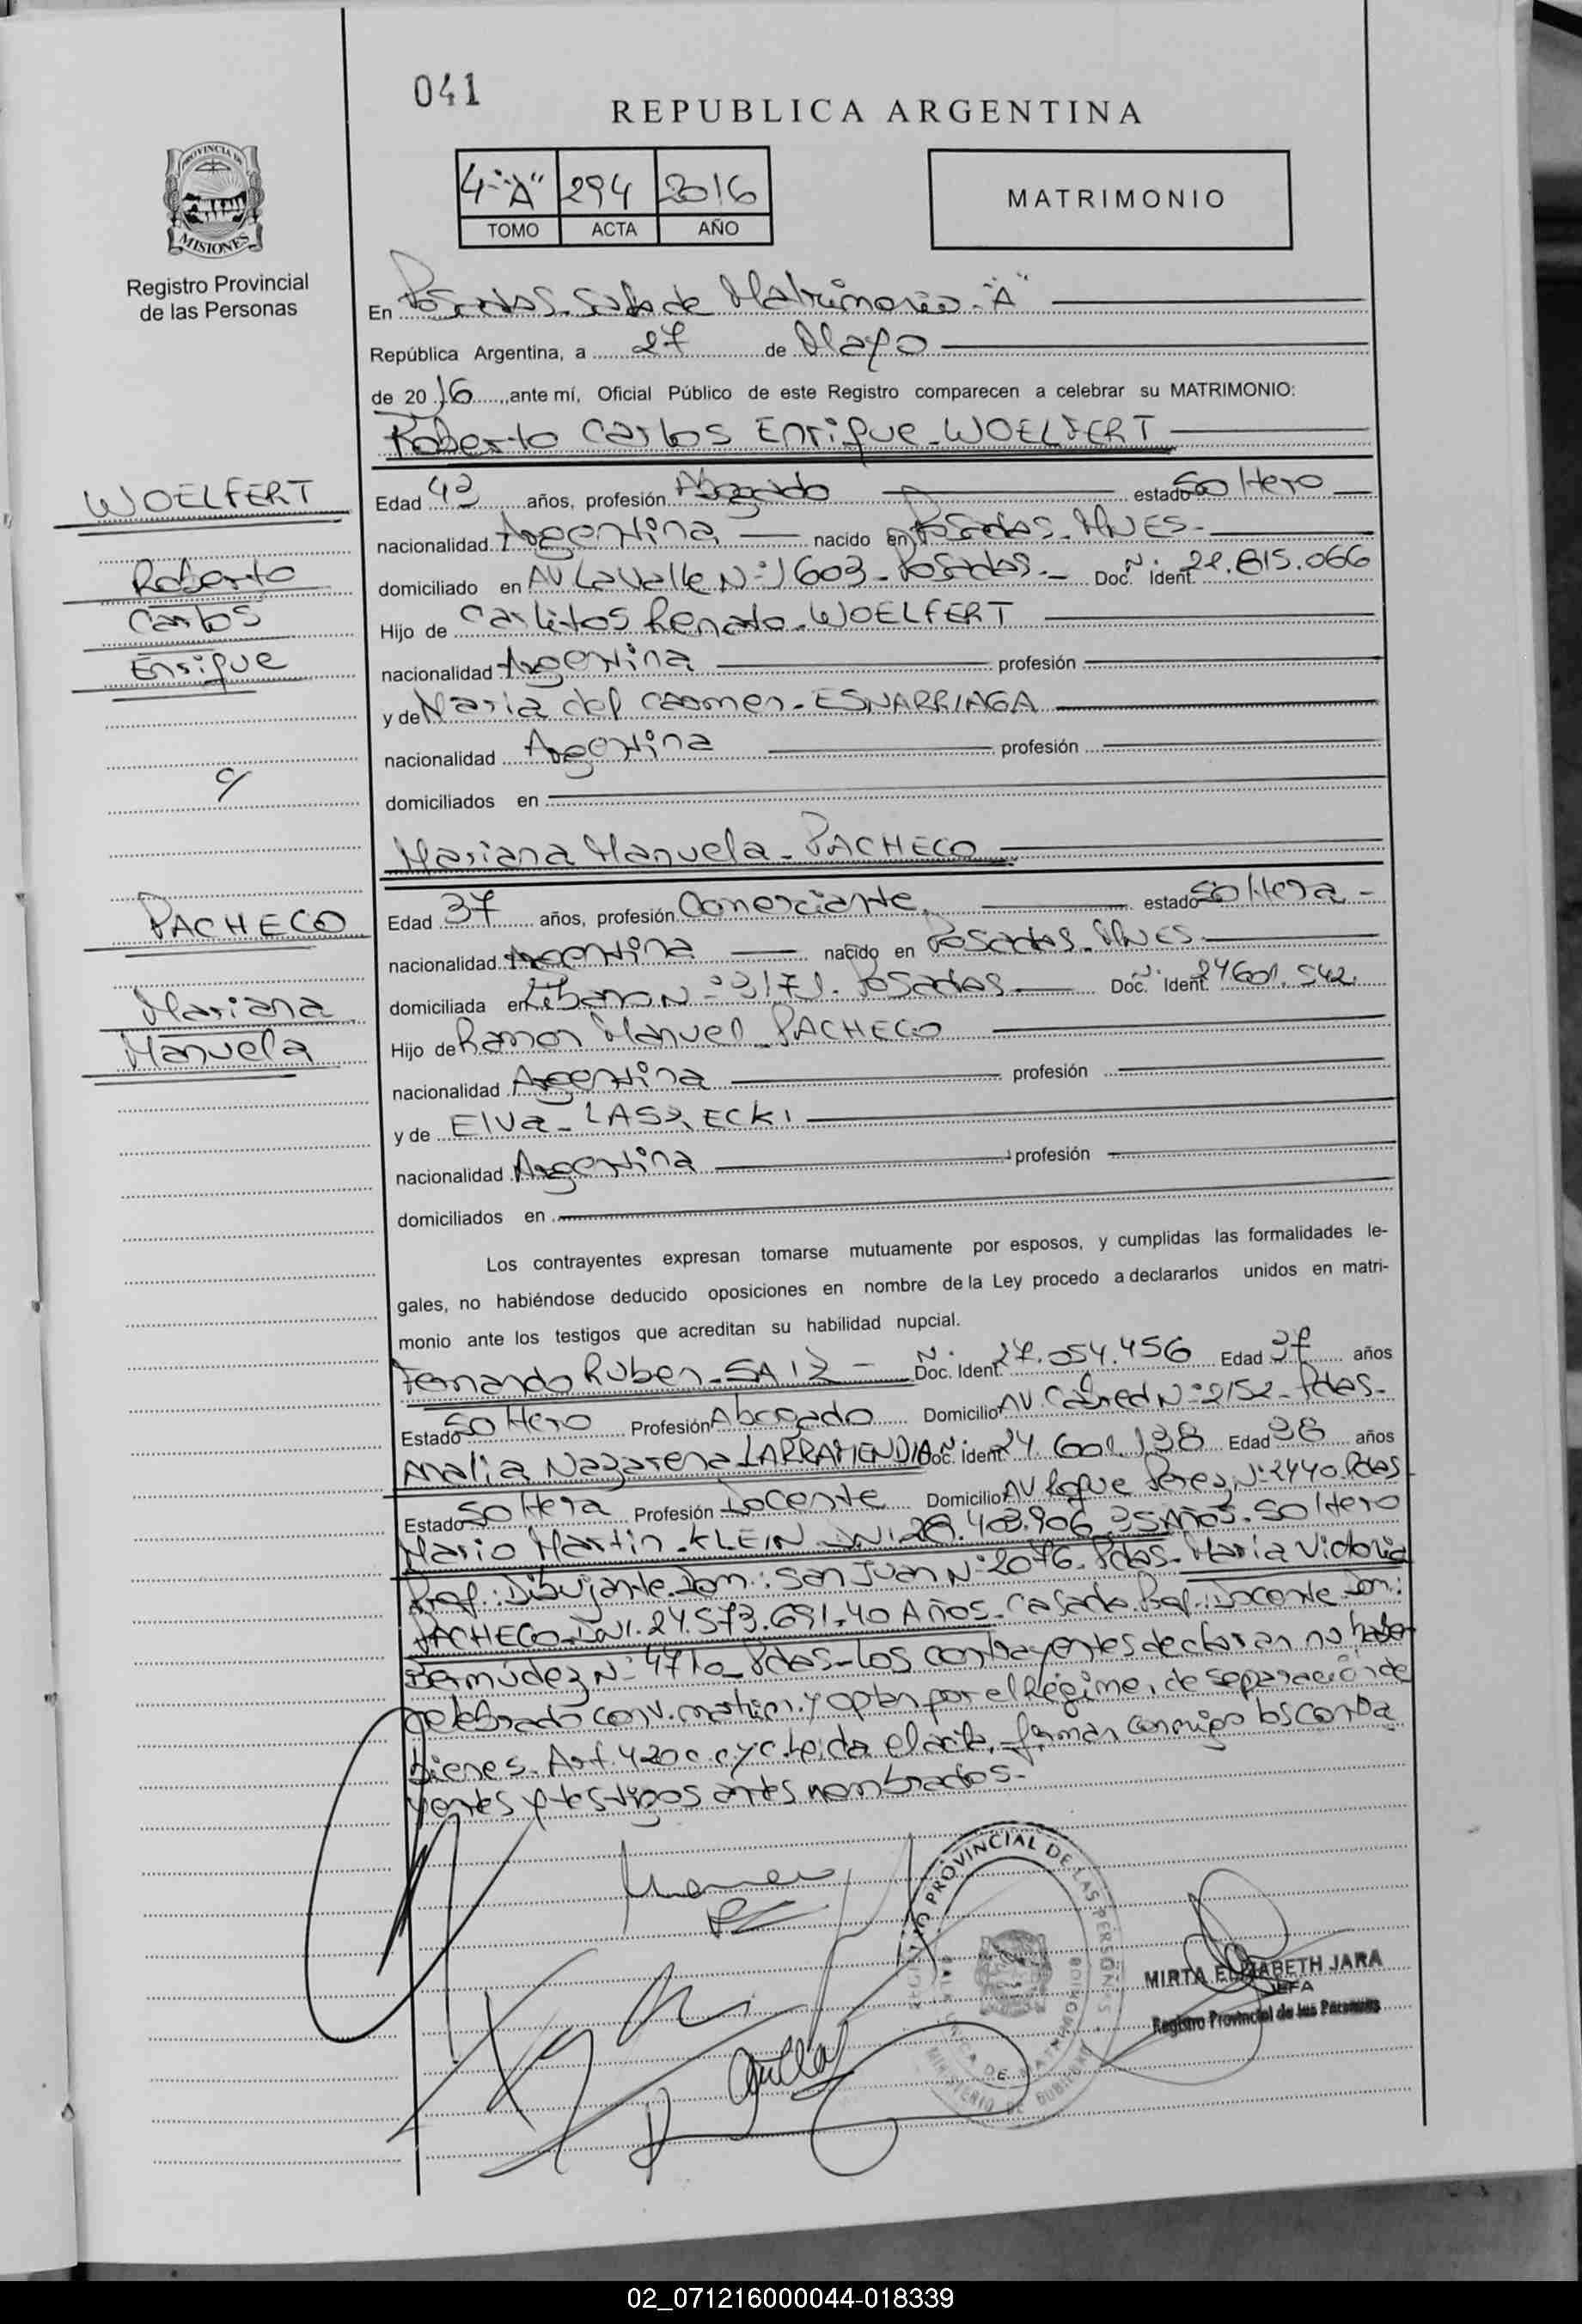 041
REPUBLICA ARGENTINA
4-"A" 294 2016
TOMO ACTA AÑO
MATRIMONIO
PROVINCIA DE
MISIONES
Registro Provincial
de las Personas
En Posadas-Sala de Matrimonio-"A"
República Argentina, a 27 de Mayo
de 2016, ante mí, Oficial Público de este Registro comparecen a celebrar su MATRIMONIO:
Roberto Carlos Enrique-WOELFERT
WOELFERT
Roberto
Carlos
Enrique
c/
PACHECO
Mariana
Manuela
Edad 42 años, profesión Abogado estado Soltero
nacionalidad Argentina nacido en Posadas-Mnes-
domiciliado en AV Lavalle N:1603-Posadas.- Doc. Ident. N 22.815.066
Hijo de Carlitos Renato-WOELFERT
nacionalidad Argentina profesión
y de Maria del Carmen-ESNARRIAGA
nacionalidad Argentina profesión
domiciliados en
Mariana Manuela-PACHECO
Edad 37 años, profesión Comerciante estado Soltera-
nacionalidad Argentina nacido en Posadas-Mnes-
domiciliada en Libano N: Posadas Doc. Ident. 24601.542.
Hijo de Ramon Manuel-PACHECO
nacionalidad Argentina profesión
y de Elva-LASZECKI
nacionalidad Argentina profesión
domiciliados en
Los contrayentes expresan tomarse mutuamente por esposos, y cumplidas las formalidades le-
gales, no habiéndose deducido oposiciones en nombre de la Ley procedo a declararlos unidos en matri-
monio ante los testigos que acreditan su habilidad nupcial.
Fernando Ruben-SAIZ- Doc. Ident. N 27.054.456 Edad 37 años
Estado Soltero Profesión Abogado Domicilio AV. Cabred N:2152-Pdas-
Analia Nazarena LARRAMENDIA Doc. Ident. N 24.601.138 Edad 38 años
Estado Soltera Profesión Docente Domicilio AV Roque Perez N:2440 Pdas
Mario Martin-KLEIN-DNI 28.403.906 35 Años-Soltero
Prof.:Dibujante-Dom.: San Juan N:2076-Pdas-Maria Victoria
PACHECO-DNI.24.573.691-40 Años-Casada-Prof.:Docente-Dom:
Bermúdez N:4710-Pdas-Los contrayentes declaran no haber
celebrado conv.matrim.y optan por el Régimen de separación de
bienes-Art.420 c.c y c.Leida el acta, firman conmigo los contra
yentes y testigos antes nombrados-
PROVINCIAL DE LAS PERSONAS
MINISTERIO DE GOBIERNO
MIRTA ELIZABETH JARA
JEFA
Registro Provincial de las Personas
02_071216000044-018339